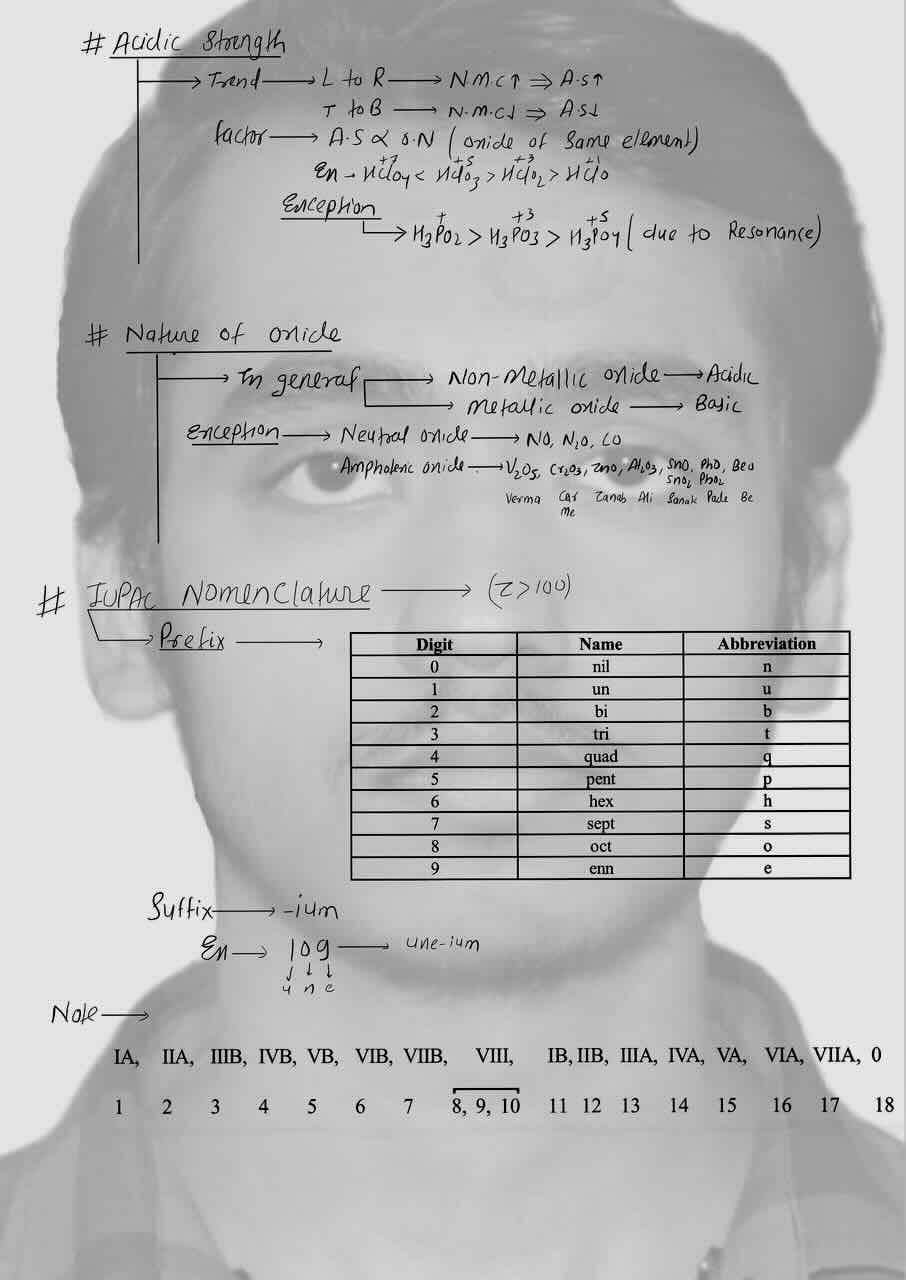 # Acidic Strength
Trend → L to R → N.M.C↑ ⇒ A.S↑
T to B → N.M.C↓ ⇒ A.S↓
factor → A.S ∝ O.N (oxide of same element)
Ex → HClO4 < HClO3 > HClO2 > HClO
+7 +5 +3 +1
Exception
+ +3 +5
→ H3PO2 > H3PO3 > H3PO4 (due to Resonance)
# Nature of oxide
→ In general → Non-Metallic oxide → Acidic
→ Metallic oxide → Basic
Exception → Neutral oxide → NO, N2O, CO
Amphoteric oxide → V2O5, Cr2O3, ZnO, Al2O3, SnO, PbO, BeO
SnO2 PbO2
Verma Car Zanab Ali Sanak Pade Be
Me
# IUPAC Nomenclature → (Z>100)
→ Prefix →
Digit Name Abbreviation
0 nil n
1 un u
2 bi b
3 tri t
4 quad q
5 pent p
6 hex h
7 sept s
8 oct o
9 enn e
Suffix → -ium
Ex → 109 → une-ium
↓ ↓ ↓
u n e
Note →
IA, IIA, IIIB, IVB, VB, VIB, VIIB, VIII, IB, IIB, IIIA, IVA, VA, VIA, VIIA, 0
1 2 3 4 5 6 7 8, 9, 10 11 12 13 14 15 16 17 18